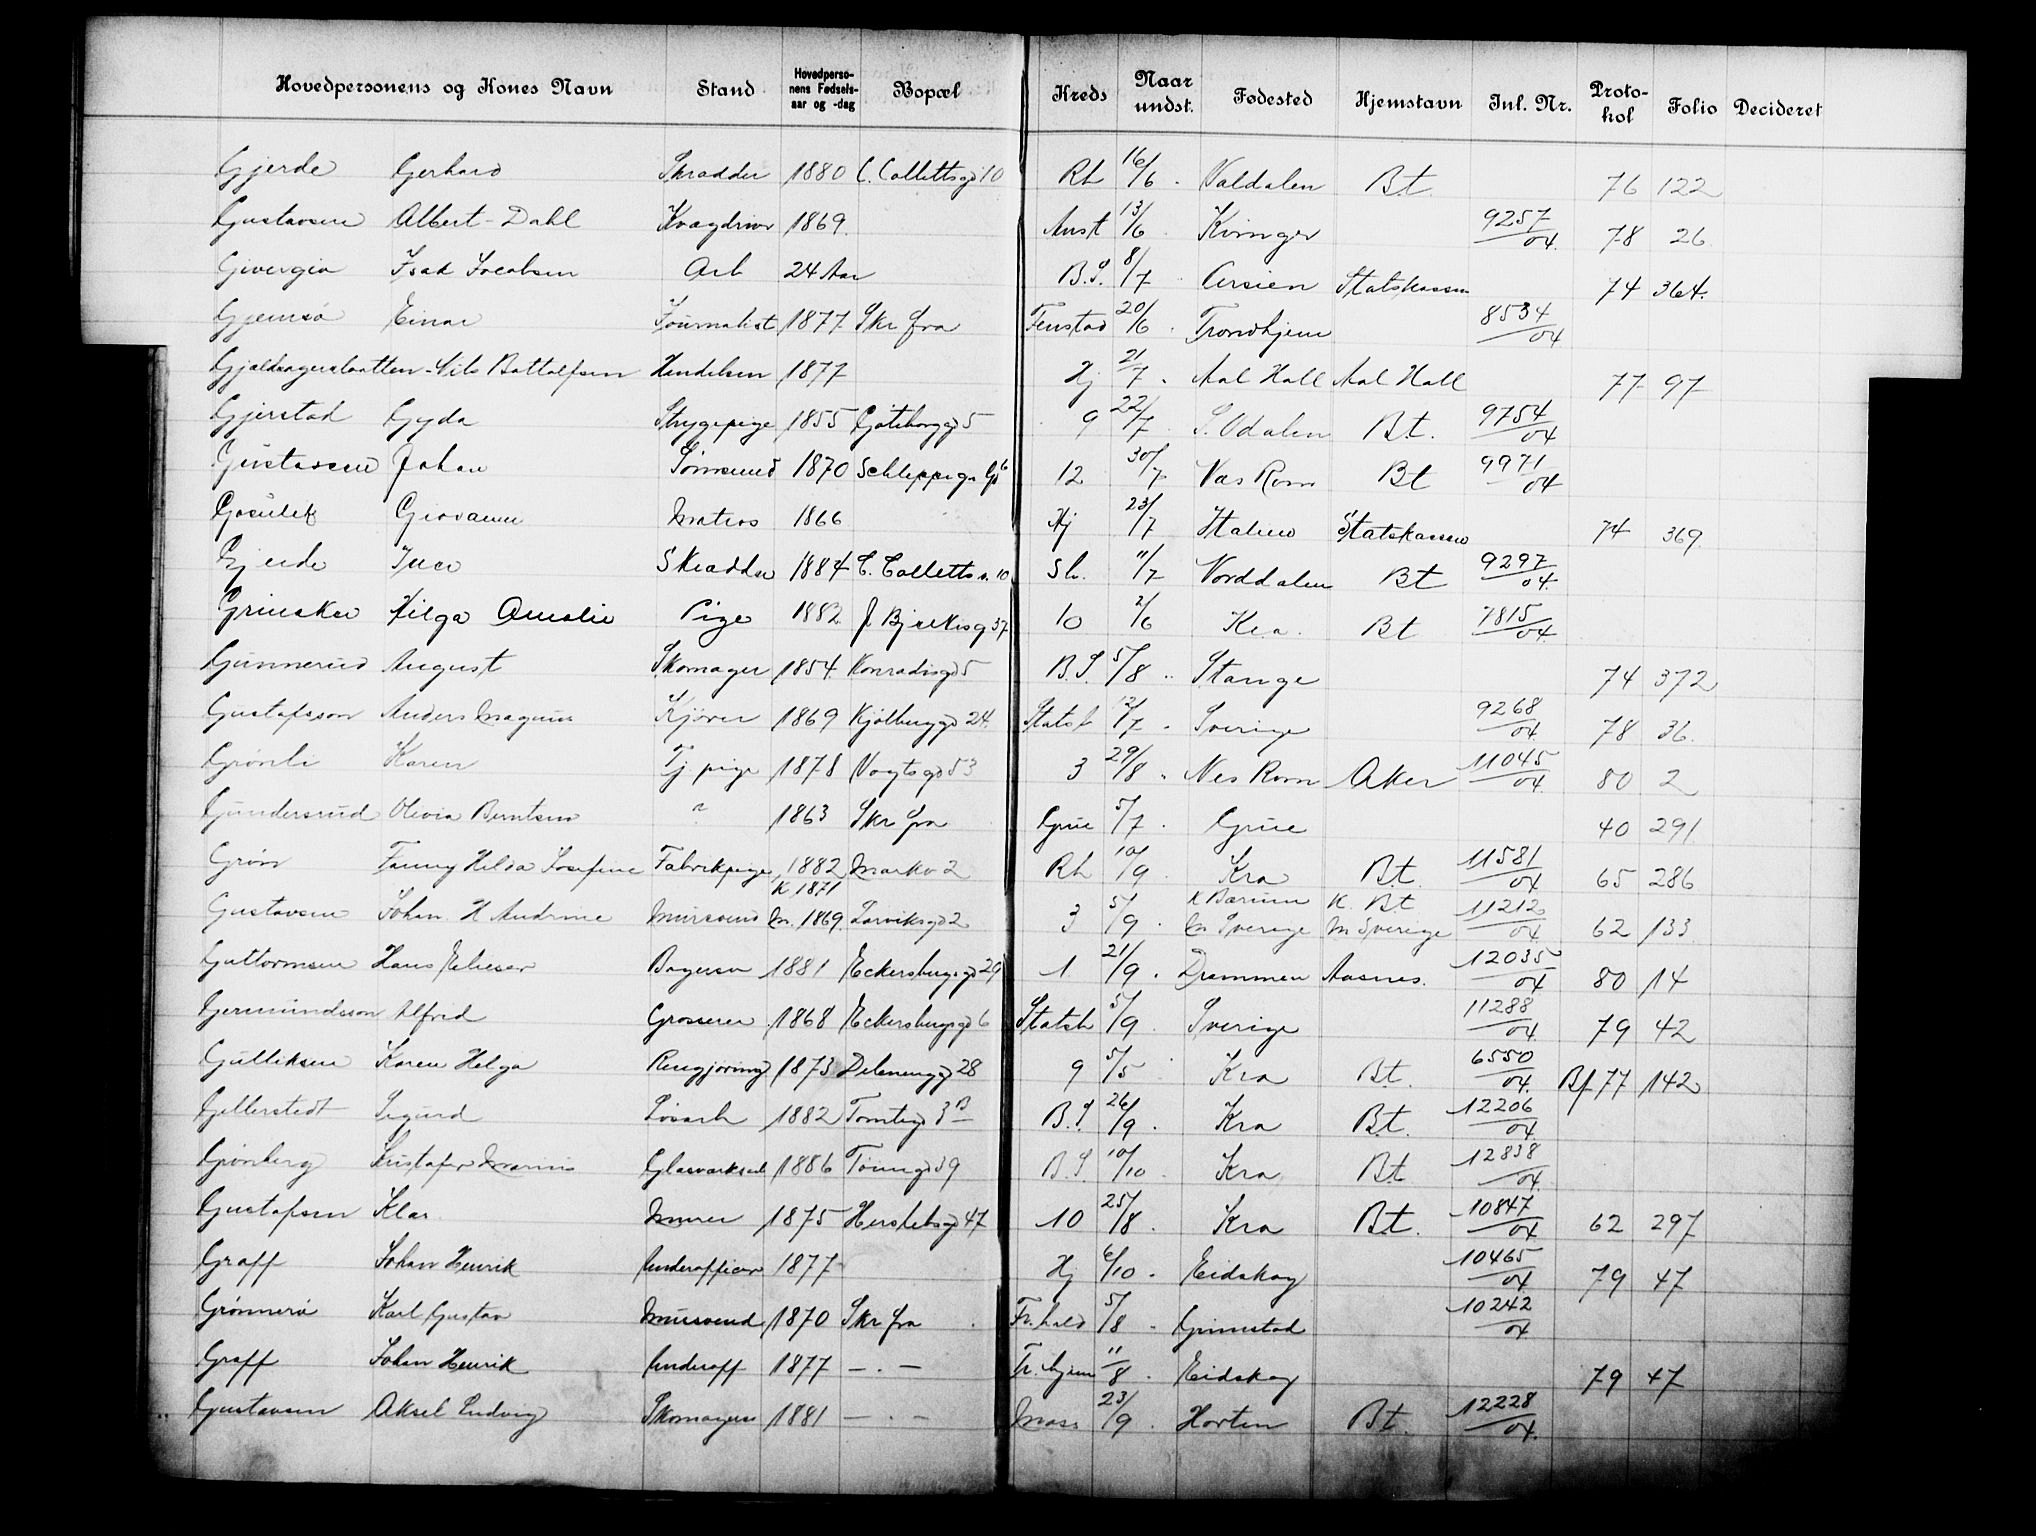 Hovedpersonens og Kones Navn Stand Hovedpersonens Fødselsaar og -dag Bopæl Kreds Naar undst. Fødested Hjemstavn Inl. Nr. Protokol Folio Decideret
Gjerde Gerhard Skrædder 1880 C. Collettsgd 10 Rh 16/6 Valdalen Bt. 76 122
Gustavsen Albert Dahl Kvægdriver 1869 Anst 13/6 Kvinger 9257/04 78 26
Givergia Isak Jacobsen Arb 24 Aar B.S. 8/7 Statskassen 74 364.
Gjemsø Einar Journalist 1877 Skr fra Fenstad 20/6 Trondhjem 8534/04
Nils Battolfsen Handelsm 1877 Hj 21/7 Aal Hall Aal Hall 77 97
Gjerstad Gyda Strygepige 1855 Gøteborggd 5 9 22/7 S. Odalen Bt. 9754/04
Gustavsen Johan Tømmermd 1870 12 30/7 Næs Rom Bt 9971/04
Giovanni Matros 1866 Hj 23/7 Italien Statskassen 74 369
Gjerde Skrædder 1884 C. Colletts 10 Sh. 11/7 Norddalen Bt 9297/04
Hilga Amalie Pige 1882 J. Bjelkesg 37 10 2/6 Kra. Bt 7815/04
Gunnerud August Skomager 1854 Konradisgd 5 B.S. 5/8 Stange 74 372
Gustafsson Anders Magnus Kjører 1869 Kjølberggd 24 Statsk 12/7 Sverige 9268/04 78 36.
Grønli Karen Tj. pige 1878 Vogtsgd 53 3 29/8 Nes Rom Aker 11045/04 80 2
Gundersrud Olivia Berntsen " 1863 Skr fra Grue 5/7 Grue 40 291
Grøn Fanny Hilda Josefine Fabrikpige 1882 Markv 2 Rh 10/9 Kra Bt. 11581/04 65 286
K 1871 K Bærum K. Bt
Gustavsen Johan H Andrine Mursvend M. 1869 Larviksgd 2 3 5/9 M Sverige M Sverige 11212/04 62 133
Guttormsen Hans Elieser Bagersv 1881 Eckersbergsgd 29 1 21/9 Drammen Aasnes. 12035/04 80 14
Germundsson Alfred Grosserer 1868 Eckersbergsgd 6 Statsk 5/9 Sverige 11288/04 79 42
Gulliksen Karen Helga Rengjøring 1873 Delenenggd 28 9 5/5 Kra Bt. 6550/04 Bf 77 142
Gellerstedt Sigurd Løsarb 1882 Tomtegd 3B B.S. 26/9 Kra Bt. 12206/04
Grønberg Gustafer Marius Glasværksarb 1886 Tøiengd 39 B.S. 10/10 Kra Bt 12838/04
Gustafsen Klas Murer 1875 Herslebsgd 47 10 25/8 Kra Bt. 10847/04 62 297
Graff Johan Henrik Underofficer 1877 Hj 6/10 Eidskog 10465/04 79 47
Grønnerø Karl Gustav Mursvend 1870 Skr fra Fr.hald 5/8 Grimstad 10242/04
Graff Johan Henrik Underoff 1877 — . — Tr. hjem 11/8 Eidskog 79 47
Gustavsen Aksel Ludvig Skomagersv 1881 — . — Moss 23/9 Horten Bt. 12228/04.